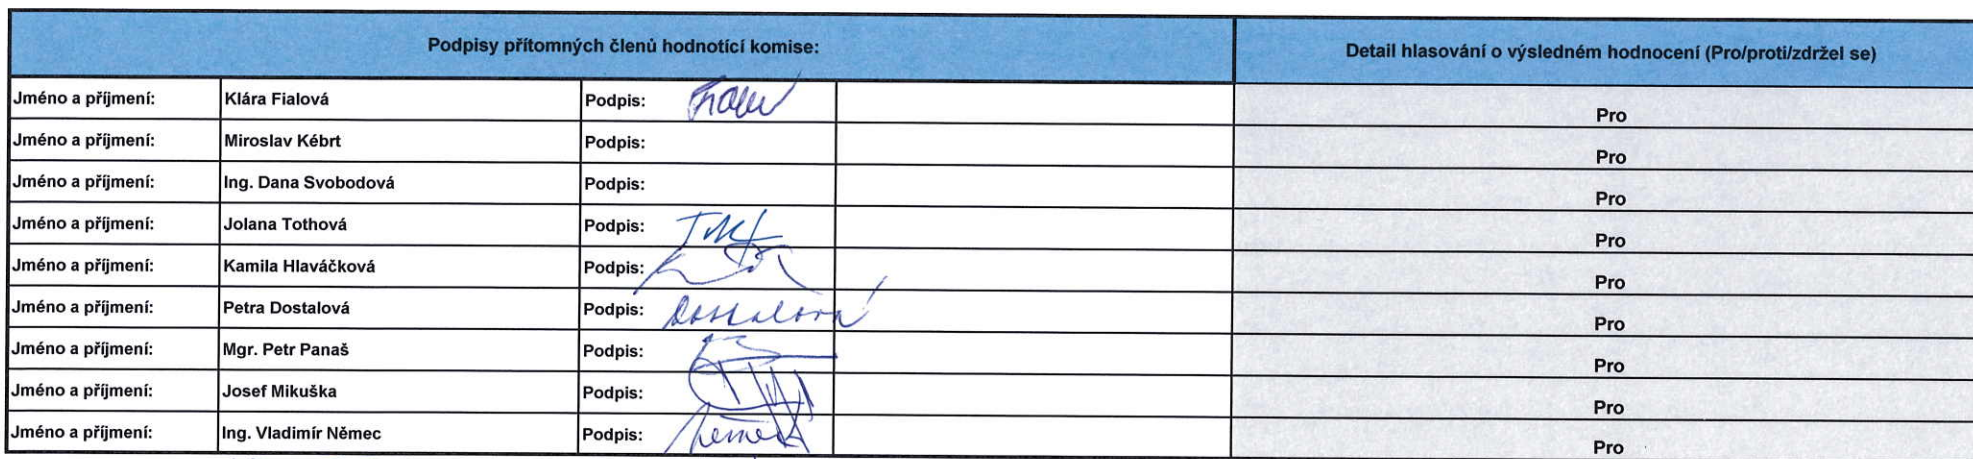 Podpisy přítomných členů hodnotící komise: Detail hlasování o výsledném hodnocení (Pro/proti/zdržel se)
Jméno a příjmení: Klára Fialová Podpis: Pro
Jméno a příjmení: Miroslav Kébrt Podpis: Pro
Jméno a příjmení: Ing. Dana Svobodová Podpis: Pro
Jméno a příjmení: Jolana Tothová Podpis: Pro
Jméno a příjmení: Kamila Hlaváčková Podpis: Pro
Jméno a příjmení: Petra Dostalová Podpis: Dostalová Pro
Jméno a příjmení: Mgr. Petr Panaš Podpis: Pro
Jméno a příjmení: Josef Mikuška Podpis: Pro
Jméno a příjmení: Ing. Vladimír Němec Podpis: Němec Pro